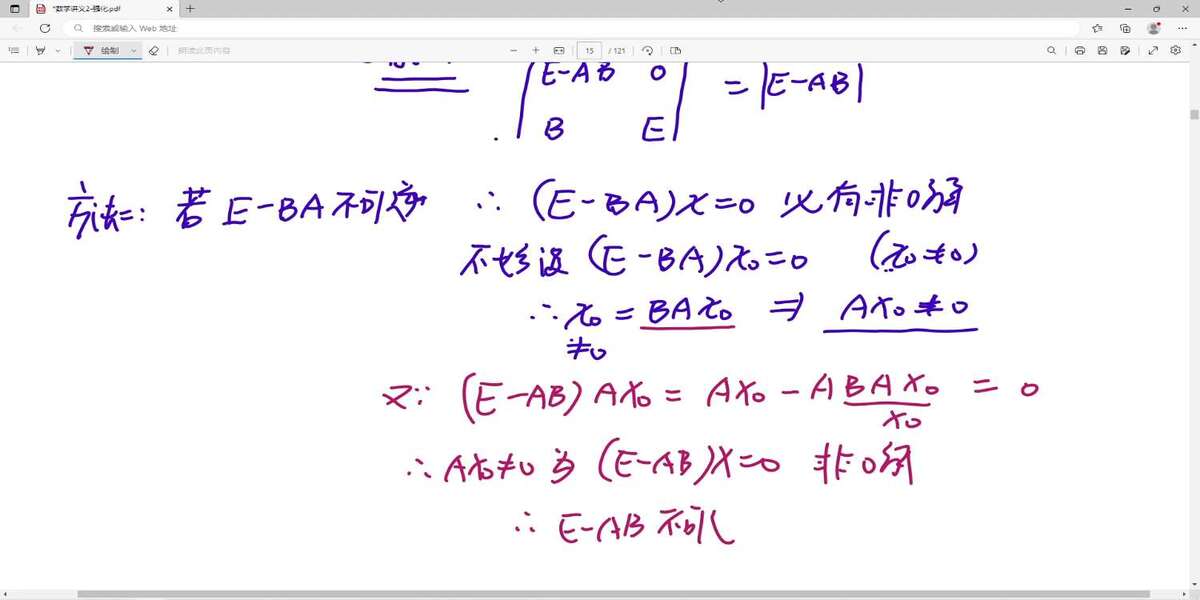 *数学讲义2-强化.pdf
搜索或输入 Web 地址
绘制
朗读此页内容
15 / 121
| E-AB 0 | = |E-AB|
B E
方法二: 若 E-BA 不可逆 ∴ (E-BA)x=0 必有非0解
不妨设 (E-BA)x₀=0 (x₀≠0)
∴ x₀ = BAx₀ ⇒ Ax₀≠0
≠0
又∵ (E-AB)Ax₀ = Ax₀ - ABAx₀ = 0
x₀
∴ Ax₀≠0 为 (E-AB)x=0 非0解
∴ E-AB 不可